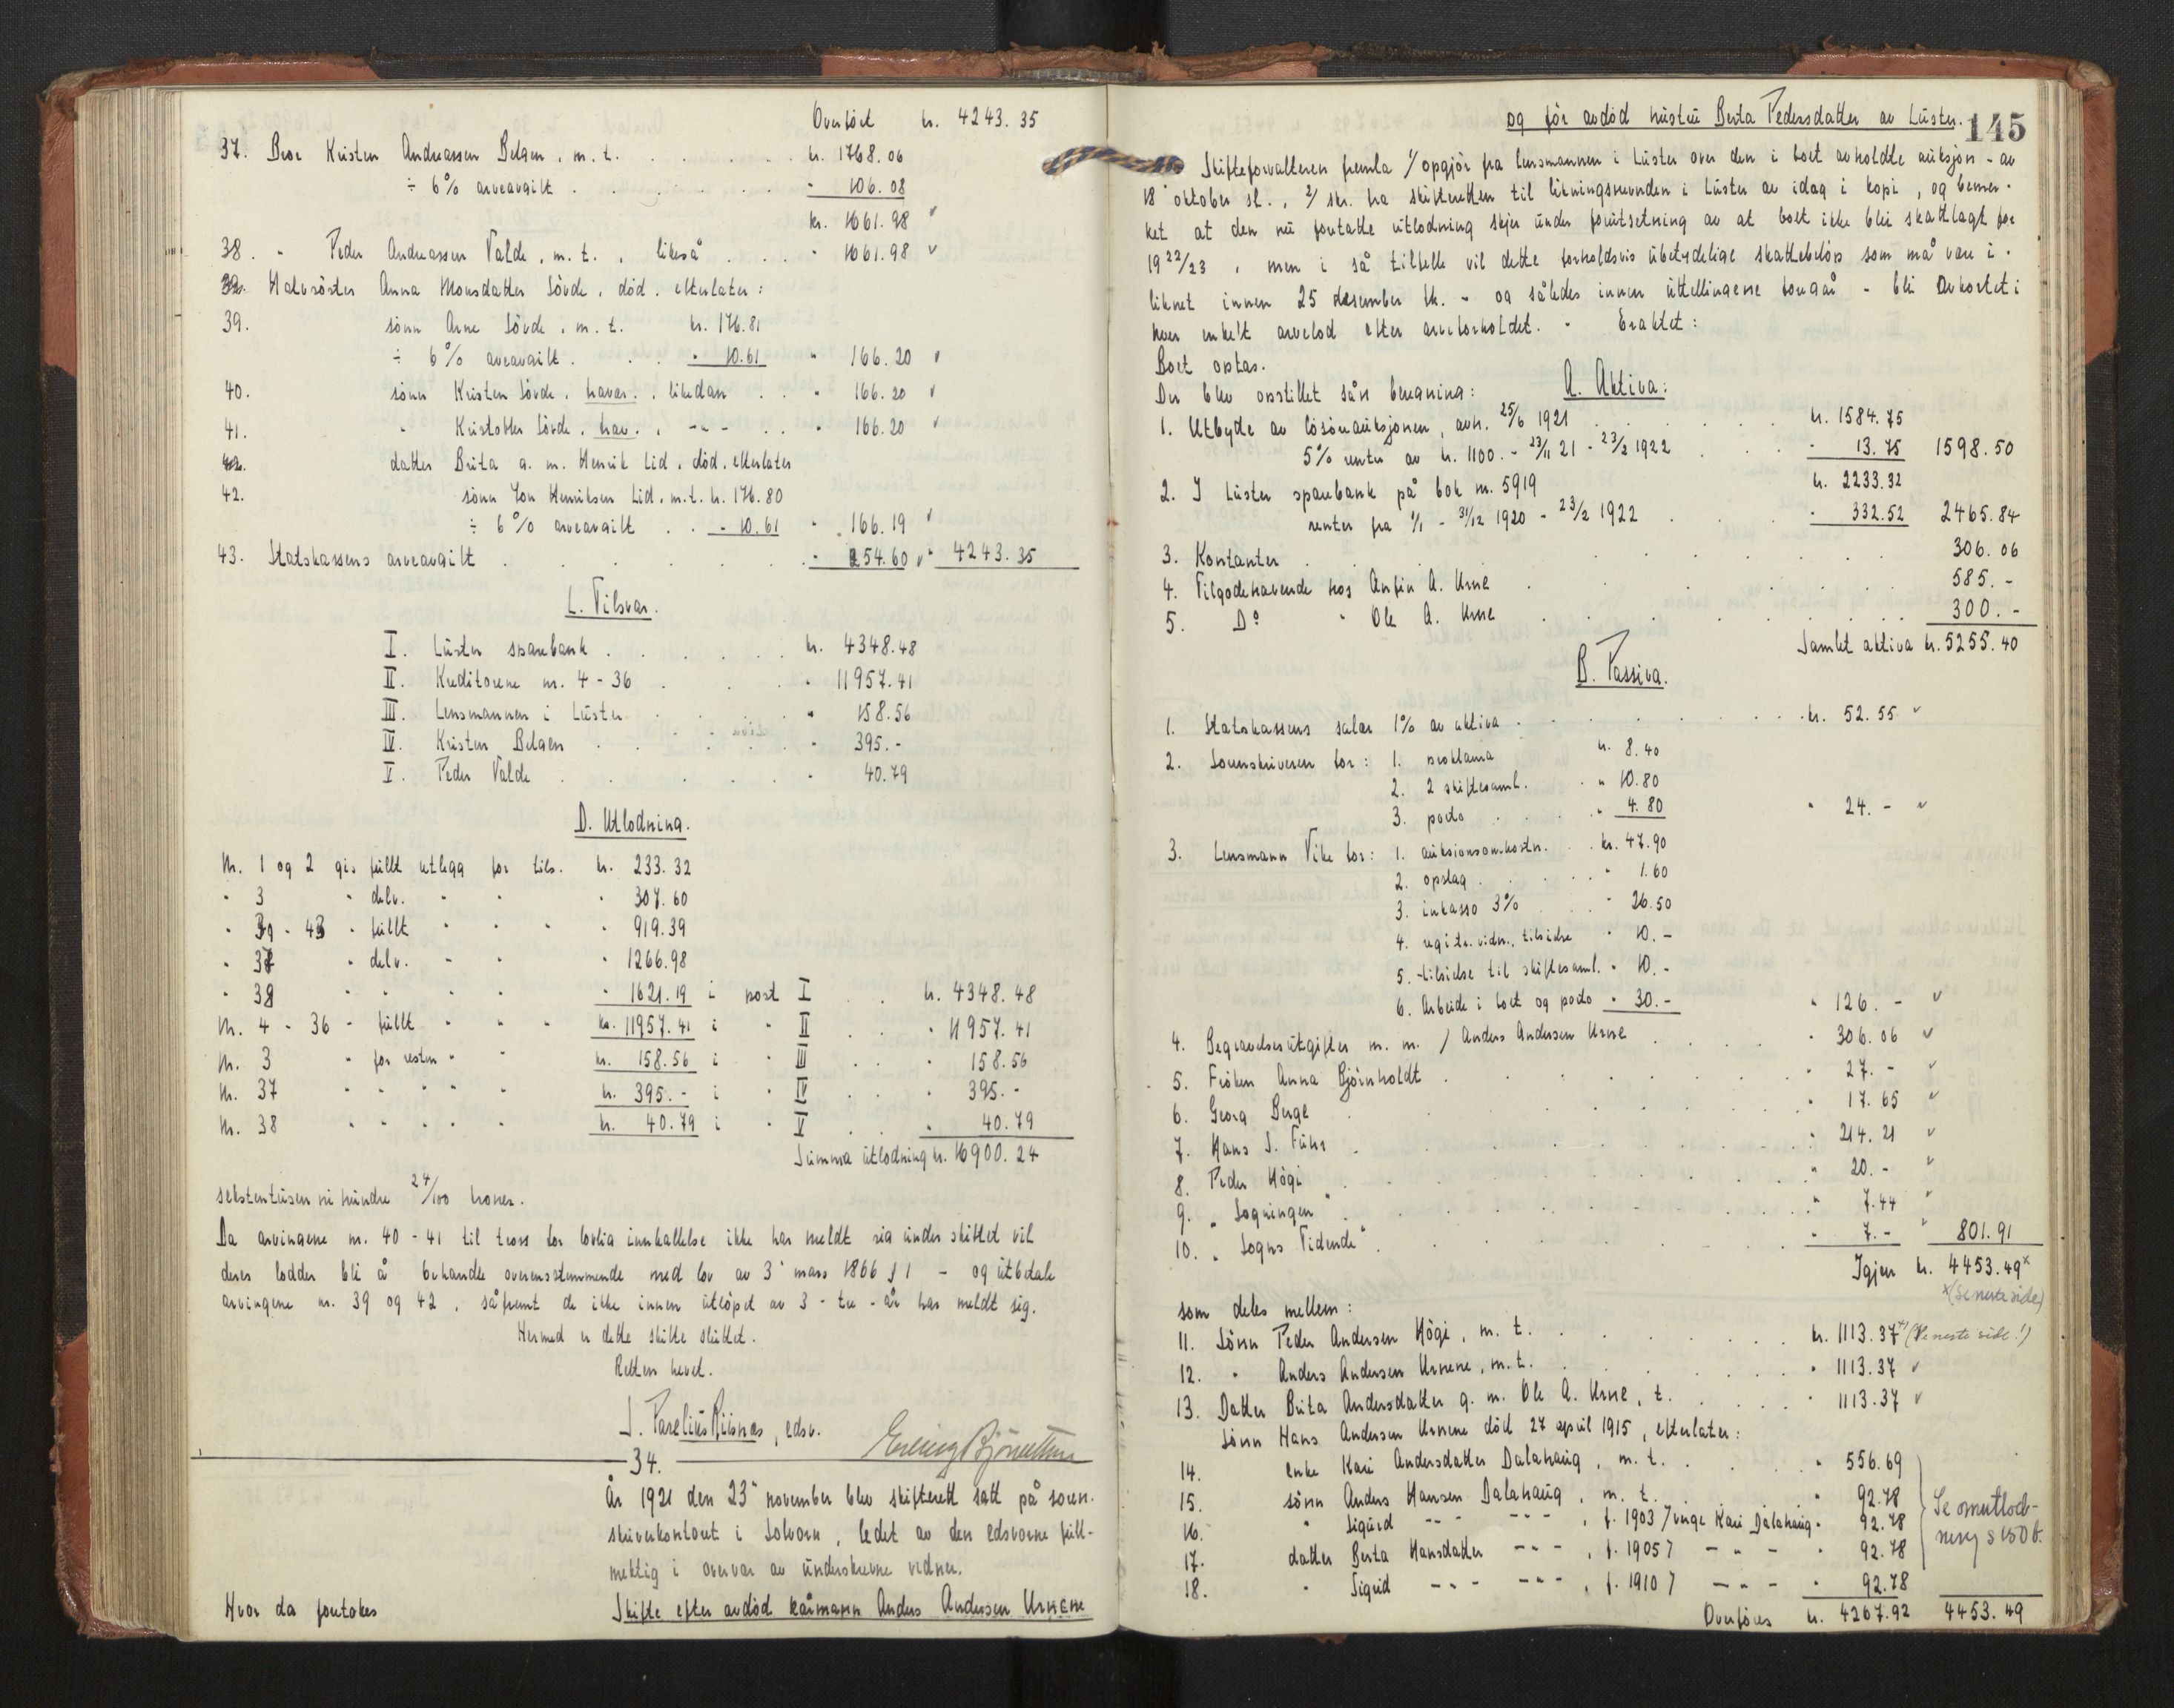 Overført kr. 4243.35
37. Bror Kristen Andreassen Bolgen, m. t. . . . . kr. 1768.06
÷ 6% arveavgift . . . . " 106.08
kr. 1661.98 ✓
38. " Peder Andreassen Valde, m. t., likeså . . . " 1661.98 ✓
Halvsöster Anna Monsdatter Sövde, död, efterlater:
39. sönn Arne Sövde, m. t. kr. 176.81
÷ 6% arveavgift . . . " 10.61 " 166.20 ✓
40. sönn Kristen Sövde, havar., likedan . . " 166.20 ✓
41. " Kristoffer Sövde, hav., --- . . " 166.20 ✓
datter Brita g. m. Henrik Lid, död, efterlater
42. sönn Jon Henriksen Lid, m.t. kr. 176.80
÷ 6% arveavgift . . - 10.61 " 166.19 ✓
43. Statskassens arveavgift . . . . " 254.60 ✓ " 4243.35
C. Tilsvar.
I. Lüster sparebank . . . . kr. 4348.48
II. Kreditorene nr. 4-36 . . . " 11957.41
III. Lensmannen i Lüster . . . " 158.56
IV. Kristen Bolgen . . . . " 395.-
V. Peder Valde . . . . " 40.79
D. Utlodning.
Nr. 1 og 2 gis füllt utlegg for tils. kr. 233.32
" 3 " delv. " " " 307.60
" 39 - 43 " füllt " " " 919.39
" 37 " delv. " " " 1266.98
" 38 " " " " " 1621.19 i post I . . kr. 4348.48
Nr. 4 - 36 - füllt " " " kr. 11957.41 i " II . . " 11957.41
Nr. 3 " for resten " " kr. 158.56 i " III . . " 158.56
Nr. 37 " " " " kr. 395.- i " IV . . " 395.-
Nr. 38 " " " " kr. 40.79 i " V . . " 40.79
Summa ütlodning kr. 16900.24
sekstentüsen ni hündre 24/100 kroner.
Da arvingene nr. 40 - 41 til tross for lovlig innkallelse ikke har meldt sig ünder skiftet vil
deres lodder bli å behandle overensstemmende med lov av 3' mars 1866 § 1 - og ütbetale
arvingene nr. 39 og 42, såfremt de ikke innen ütlöpet av 3 - tre - år har meldt sig.
Hermed er dette skifte slüttet.
Retten hevet.
J. Parelius Riisnæs, edsv.
34.
År 1921 den 23' november blev skifterett satt på soren-
skriverkontoret i Solvorn, ledet av den edsvorne füll-
mektig i overvær av ünderskrevne vidner.
Hvor da foretokes
Skifte efter avdöd kårmann Anders Andersen Urnene
og för avdöd hüstrü Berta Pedersdatter av Lüster.
145
Skifteforvalteren fremla 1/ opgjör fra lensmannen i Lüster over den i boet avholdte aüksjon - av
18' oktober sl., 2/ skr. fra skifteretten til likningsnevnden i Lüster av idag i kopi, og bemer-
ket at den nü foretatte ütlodning skjer ünder forütsetning av at boet ikke blir skattlagt for
1922/23, men i så tilfelle vil dette forholdsvis übetydelige skattebelöp som må være i-
liknet innen 25 desember fk. - og således innen üttellingene foregår - bli avkortet i
hver enkelt arvelod efter arveforholdet. - Eraktet:
Boet optas.
Der blev opstillet sån beregning: A. Aktiva:
1. Utbytte av lösöreaüksjonen, avh. 25/6 1921 . . . . kr. 1584.75
5% renter av kr. 1100.- 23/11 21 - 23/2 1922 . . . " 13.75 1598.50
2. I Lüster sparebank på bok nr. 5919 kr. 2233.32
renter fra 1/1 - 31/12 1920 - 23/2 1922 . . . " 332.52 2465.84
3. Kontanter . . . . 306.06
4. Tilgodehavende hos Anfin A. Urne . . . . 585.-
5. Do " Ole A. Urne . . . . 300.-
Samlet aktiva kr. 5255.40
B. Passiva.
1. Statskassens salær 1% av aktiva . . . . kr. 52.55 ✓
2. Sorenskriveren for: 1. proklama kr. 8.40
2. 2 skiftesaml. . " 10.80
3. porto . . . " 4.80 " 24.- ✓
3. Lensmann Vike for: 1. aüksionsomkostn. . kr. 47.90
2. opslag . . . " 1.60
3. inkasso 3% " 26.50
4. registr. vidn., tilsidse " 10.-
5. tilsidse til skiftesaml. " 10.-
6. Arbeide i boet og porto " 30.- " 126.- ✓
4. Begravelsesütgifter m. m. / Anders Andersen Urne . . . " 306.06 ✓
5. Fröken Anna Bjørnholdt . . . . " 27.- ✓
6. Georg Berge . . . . " 17.65 ✓
7. Hans J. Führ . . . . " 214.21 ✓
8. Peder Högi . . . . " 20.- ✓
9. "Sogningen" . . . . " 7.44 ✓
10. "Sogns Tidende" . . . . " 7.- ✓ 801.91
Igjen kr. 4453.49 x
x (se neste side)
som deles mellem:
11. Sönn Peder Andersen Högi, m. t. . . . . kr. 1113.37 x) (Se neste side!)
12. " Anders Andersen Urnene, m.t. . . . . " 1113.37 ✓
13. Datter Brita Andersdatter g. m. Ole A. Urne, t. . . . " 1113.37 ✓
Sönn Hans Andersen Urnene död 27 april 1915, efterlater:
14. enke Kari Andersdatter Dalahaüg, m. t. . . . " 556.69
15. sönn Anders Hansen Dalahaüg, m. t. . . . " 92.78
16. " Sigürd --- ---, f. 1903 / verge Kari Dalahaüg " 92.78
17. datter Berta Hansdatter ---, f. 1905 / --- " 92.78
18. " Sigrid --- ---, f. 1910 / --- " 92.78
Se omutlod-
ning s 150 b.
Overföres kr. 4267.92 4453.49